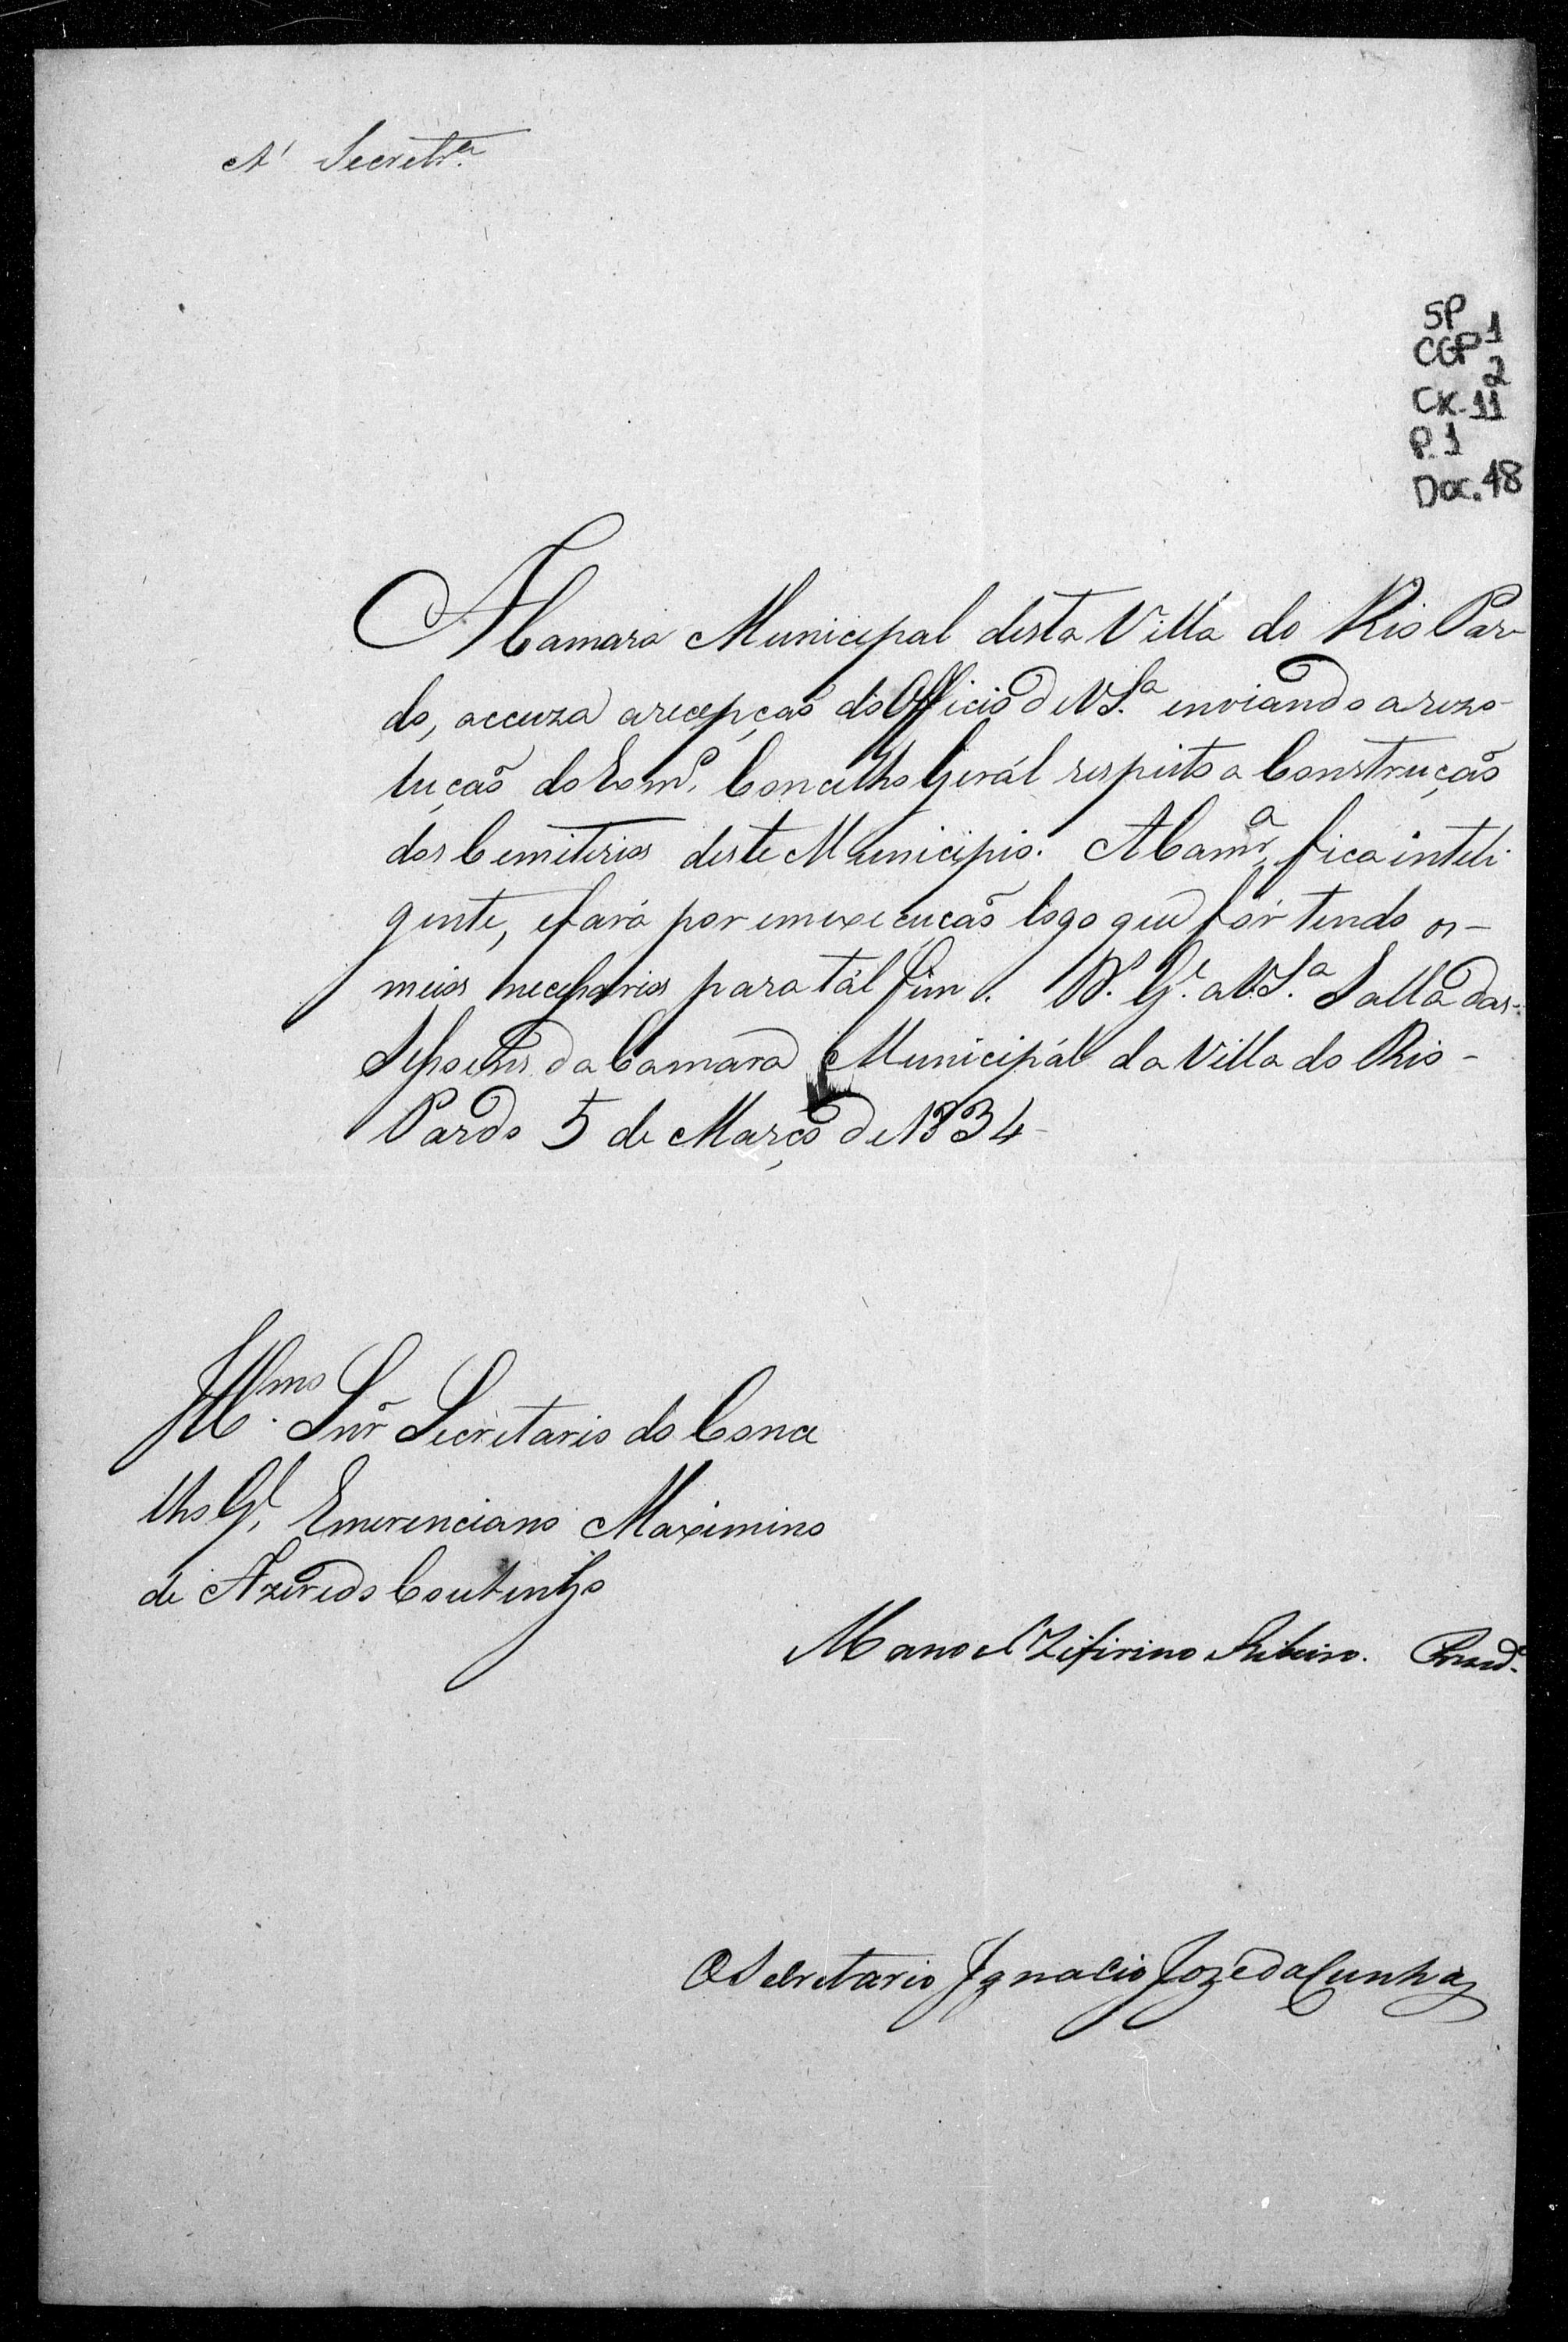 A' Secretr.ª
SP
CGP 1
2
CX. 11
P. 1
Doc. 48
A Camara Municipal desta Villa do Rio Par-
do, accuza a recepção do Officio de V.S.ª enviando a rezo-
lução do Exm.º Concelho Gerál respeito a Construcção
dos Cemiterios deste Municipio. A Camr.ª fica inteli-
gente, e fará por em execução logo que fôr tendo os-
meios necessarios para tál fim. D.s G.e a V.S.ª Salla das-
Sessoens da Camara Municipál da Villa do Rio-
Pardo 5 de Março de 1834-
Ill.mo Snr Secretario do Conce
lho G.l Emerenciano Maximino
de Azeredo Coutinho
Manoel Zifirino Ribeiro. Prezid.e
O Secretario Ignacio Jozé da Cunha